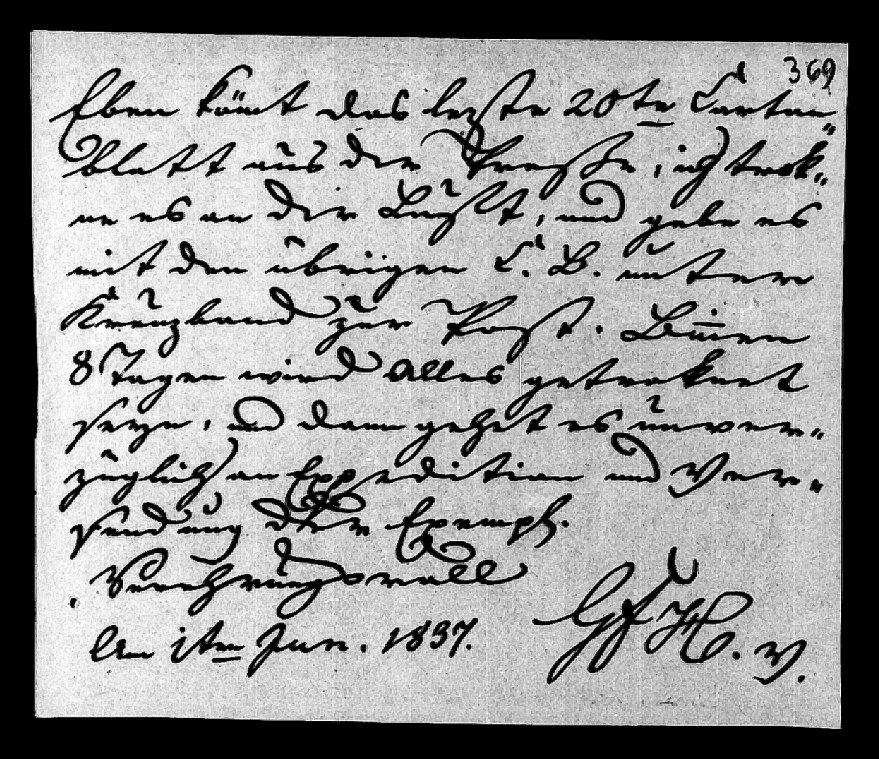 369
Eben kömt das lezte 20te Carten-
blatt aus der Presse, ich trok-
ne es an der Luft, und gebe es
mit den übrigen C. B. unter
Kreuzband zur Post. Binnen
8 Tagen wird Alles getroknet
seyn, und dann gehet es unver-
züglich an Expedition und Ver-
sendung der Exempl.
Verehrungsvoll
Am 1ten Jun. 1837.